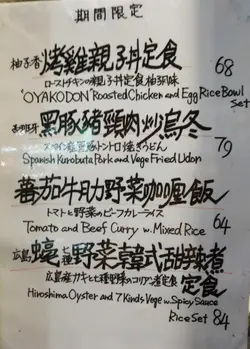 期間限定
柚子香 烤雞親子丼定食 68
ローストチキンの親子丼定食柚子味
"OYAKODON" Roasted Chicken and Egg Rice Bowl Set
黑豚豬頸肉炒烏冬 79
スペイン産黒豚トントロ焼きうどん
Spanish Kurobuta Pork and Vege Fried Udon
蕃茄牛肋野菜咖喱飯 64
トマトと野菜のビーフカレーライス
Tomato and Beef Curry w. Mixed Rice
広島蠔七種野菜韓式甜辣煮定食
広島産カキと七種野菜のコリアン煮定食
Hiroshima Oyster and 7 Kinds Vege w. Spicy Sauce
Rice Set 84